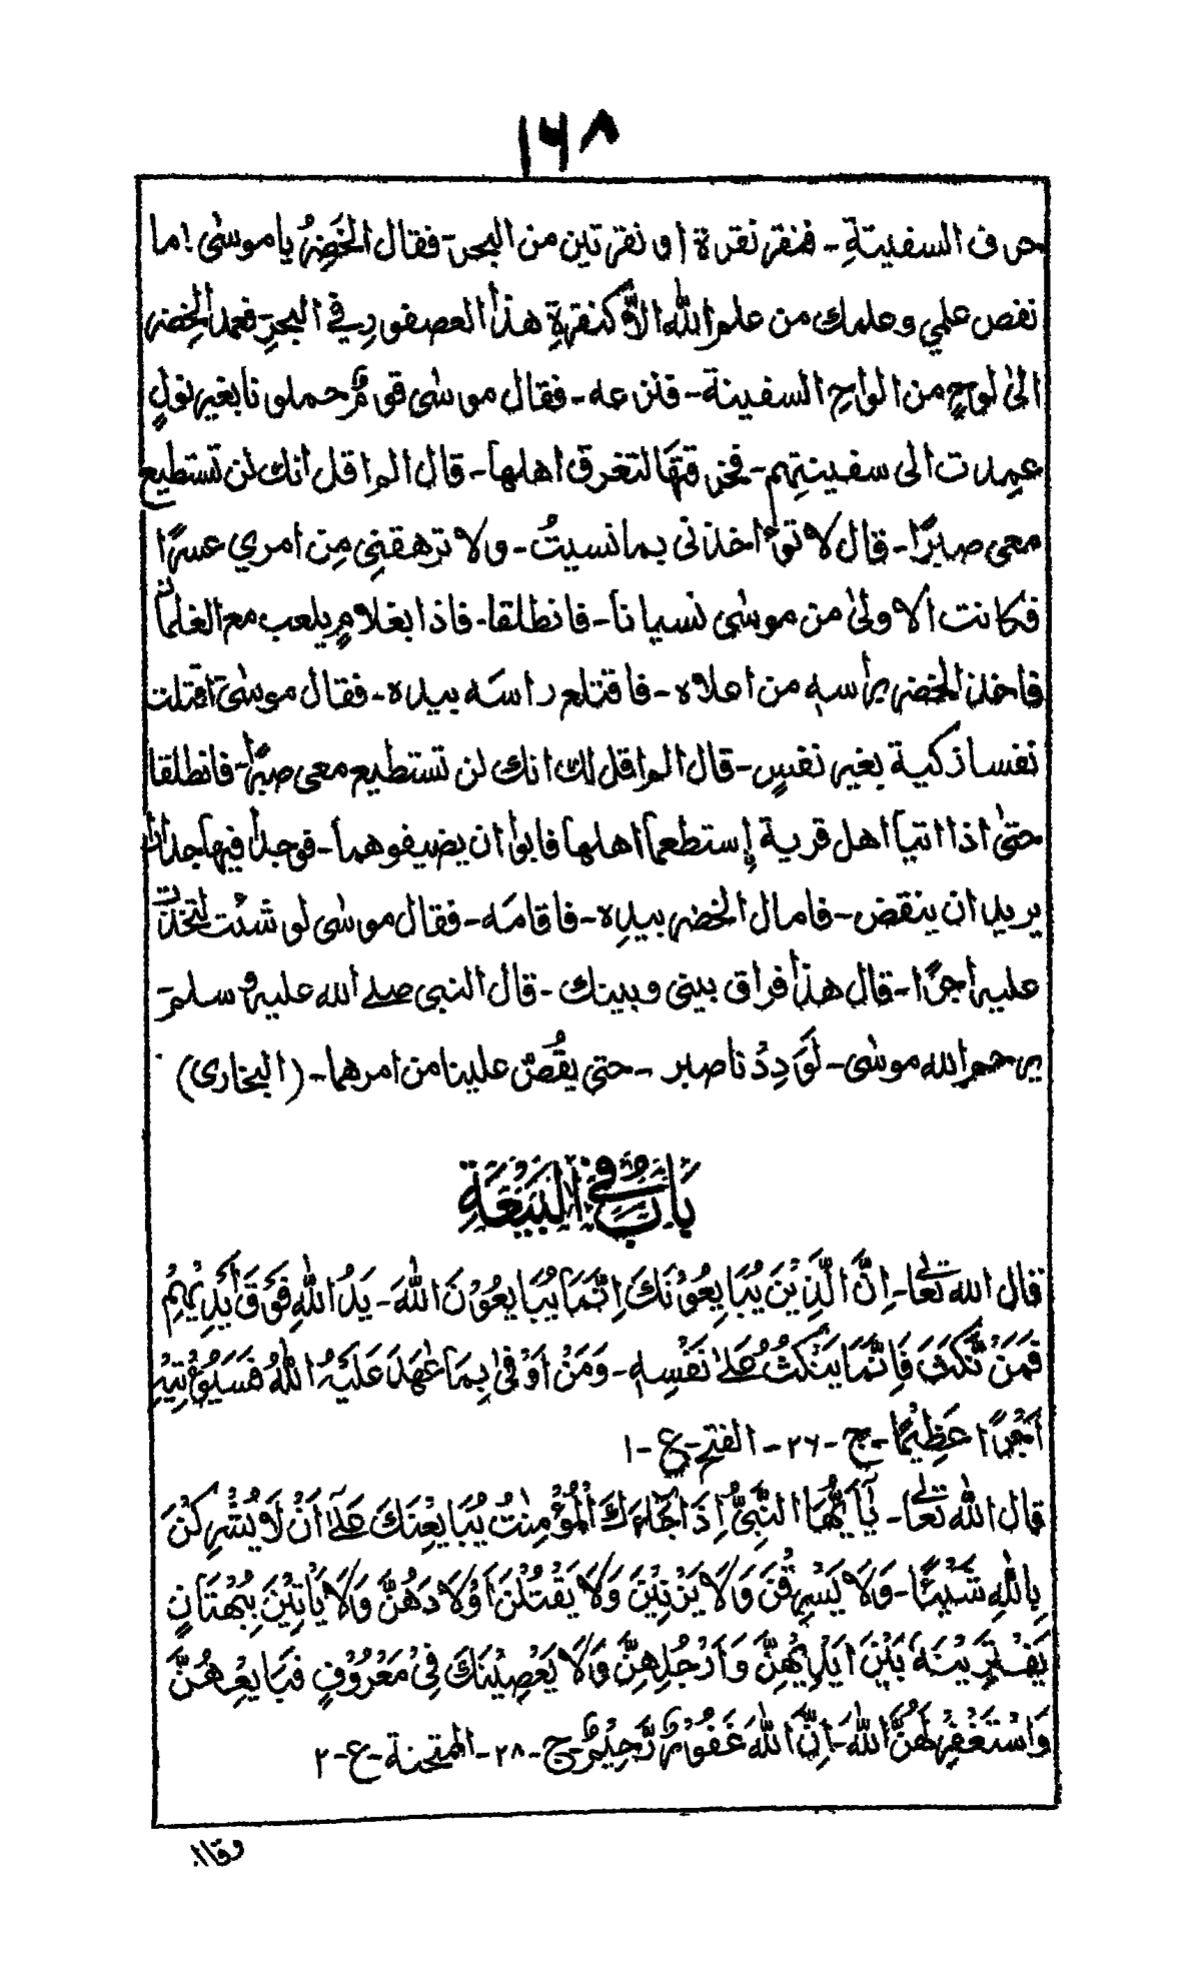 ١٦٨
حرف السفينةِ - فنقر نقرة او نقرتين من البحر - فقال الخَضِرُ يا موسٰى ! ما
نقص علمي وعلمك من علم اللّٰه الّا كنقرةِ هذا العصفورِ في البحرِ - فعمد الخضر
الىٰ لوحٍ من الواحِ السفينة - فنزعه - فقال موسٰى قومٌ حملونا بغير نولٍ
عمِدت الى سفينتِهم - فخرقتَها لتغرق اهلها - قال الم اقل انك لن تستطيع
معى صبرًا - قال لا تؤاخذنى بما نسيتُ - ولا ترهقنِي مِن امري عسرًا
فكانت الاولىٰ من موسٰى نسيانا - فانطلقا - فاذا بغلامٍ يلعب مع الغلمان
فاخذ الخضر برأسهٖ من اعلاه - فاقتلع راسَه بيده - فقال موسٰى اقتلت
نفسا زكية بغير نفسٍ - قال الم اقل لك انك لن تستطيع معى صبرًا - فانطلقا
حتىٰ اذا اتيا اهل قرية إستطعما اهلها فابوا ان يضيفوهما - فوجدا فيها جدارا
يريد ان ينقض - فامال الخضر بيدِه - فاقامَه - فقال موسٰى لو شئت لتخذت
عليه اجرًا - قال هذا فراق بينى وبينك - قال النبى صلے الله عليه وسلم -
يرحم الله موسٰى - لَوَدِدْنا صبر - حتى يقُصّ علينا من امرهما - (البخارى)
بَابٌ فِي الْبَيْعَةِ
قال الله تعالٰى - اِنَّ الَّذِيْنَ يُبَايِعُوْنَكَ اِنَّمَا يُبَايِعُوْنَ اللّٰهَ - يَدُ اللّٰهِ فَوْقَ أَيْدِيْهِمْ
فَمَنْ نَّكَثَ فَاِنَّمَا يَنْكُثُ عَلٰے نَفْسِهٖ - وَمَنْ اَوْفٰى بِمَا عٰهَدَ عَلَيْهُ اللّٰهَ فَسَيُؤْتِيْهِ
اَجْرًا عَظِيْمًا - ج - ٢٦ - الفتح - ع - ١
قال اللّٰه تعالٰى - يٰٓاَيُّهَا النَّبِىُّ اِذَا جَآءَكَ الْمُؤْمِنٰتُ يُبَايِعْنَكَ عَلٰٓے اَنْ لَا يُشْرِكْنَ
بِاللّٰهِ شَيْئًا - وَلَا يَسْرِقْنَ وَلَا يَزْنِيْنَ وَلَا يَقْتُلْنَ اَوْلَادَهُنَّ وَلَا يَأْتِيْنَ بِبُهْتَانٍ
يَفْتَرِيْنَهٗ بَيْنَ اَيْدِيْهِنَّ وَاَرْجُلِهِنَّ وَلَا يَعْصِيْنَكَ فِىْ مَعْرُوْفٍ فَبَايِعْهُنَّ
وَاسْتَغْفِرْ لَهُنَّ اللّٰهَ - اِنَّ اللّٰهَ غَفُوْرٌ رَّحِيْمٌ - ج - ٢٨ - الممتحنة - ع - ٢
وقال